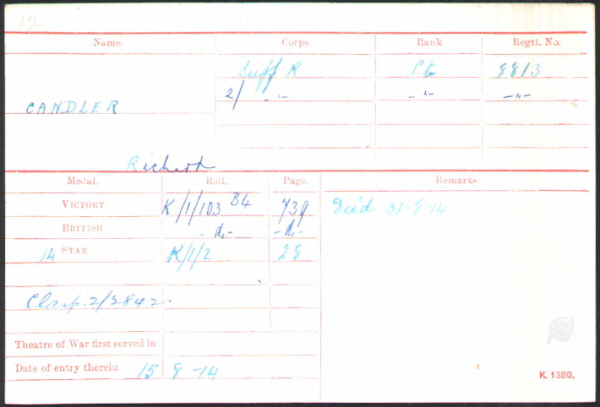 12
Name. Corps. Rank Regtl. No.
Suff R Pte 8813
2/ -"- -"- -"-
CANDLER
Richard
Medal. Roll. Page. Remarks.
VICTORY K/1/103 B4 739 Died 31-8-14
BRITISH -do- -do-
14 STAR K/1/2 28
Clasp. 2/3842.
Theatre of War first served in
Date of entry therein 15 8 -14
K. 1380.